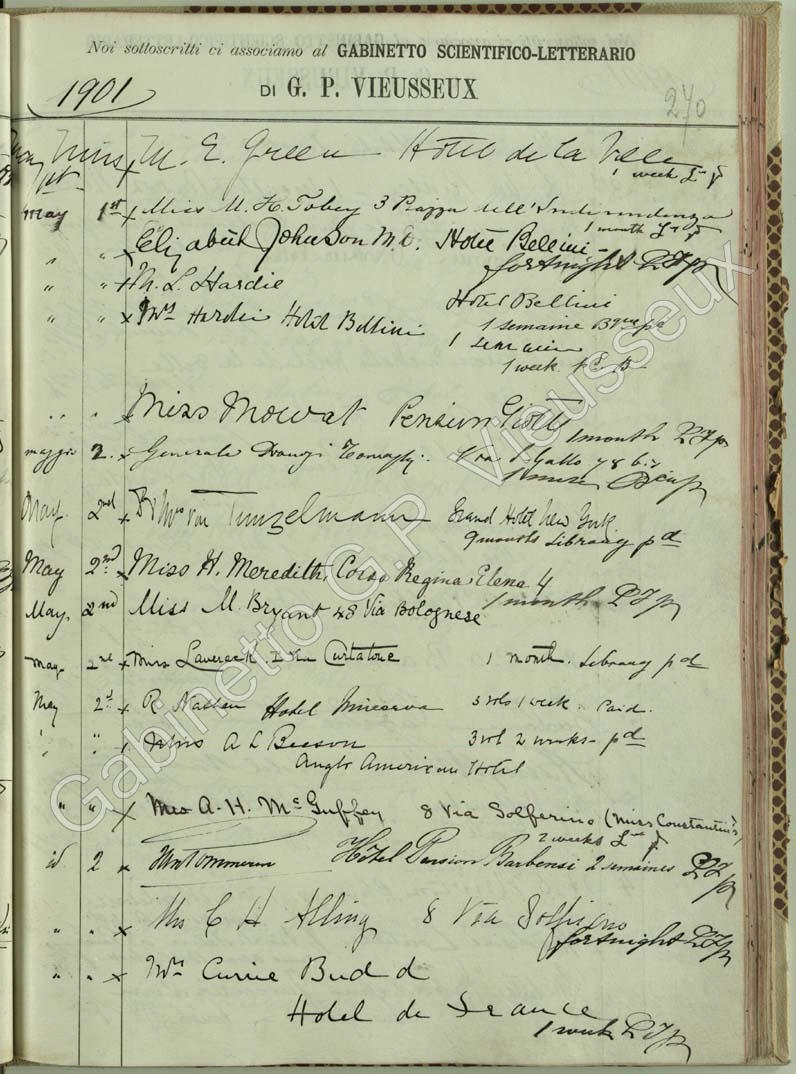 Noi sottoscritti ci associamo al GABINETTO SCIENTIFICO-LETTERARIO
DI G. P. VIEUSSEUX
1901
270
x M. E. Green Hotel de la Ville
1 week
May 1st x Miss M. H. Tobey 3 Piazza dell'Indipendenza
1 month
" " x Elizabeth Johnson M.D. Hotel Bellini
fortnight
" " x M. L. Hardie
Hotel Bellini
" " x Mrs Hardie Hotel Bellini 1 semaine
1 semaine
1 week
" " x Miss Mowat Pension Giotti
1 month
maggio 2. x Generale Via S. Gallo
May 2nd x Mrs von Tunzelmann Grand Hotel New York
9 months Library pd
May 2nd x Miss H. Meredith, Corso Regina Elena 4
1 month
May 2nd Miss M. Bryant 48 Via Bolognese
May 2nd x Miss Laverack. Via Curtatone 1 month. Library pd
May 2d x R Nathan Hotel Minerva 3 vols 1 week. Paid.
" " x Miss A L Beeson 3 vol 2 weeks - pd
Anglo American Hotel
" " x A. H. McGuffey 8 Via Solferino (Miss Constantine's)
2 weeks
id 2 x Hôtel Pension Barbensi 2 semaines
" " x C H Alling 8 Via Solferino
fortnight
" " x Mrs Currie Budd
Hotel de France
1 week
Gabinetto G.P. Vieusseux